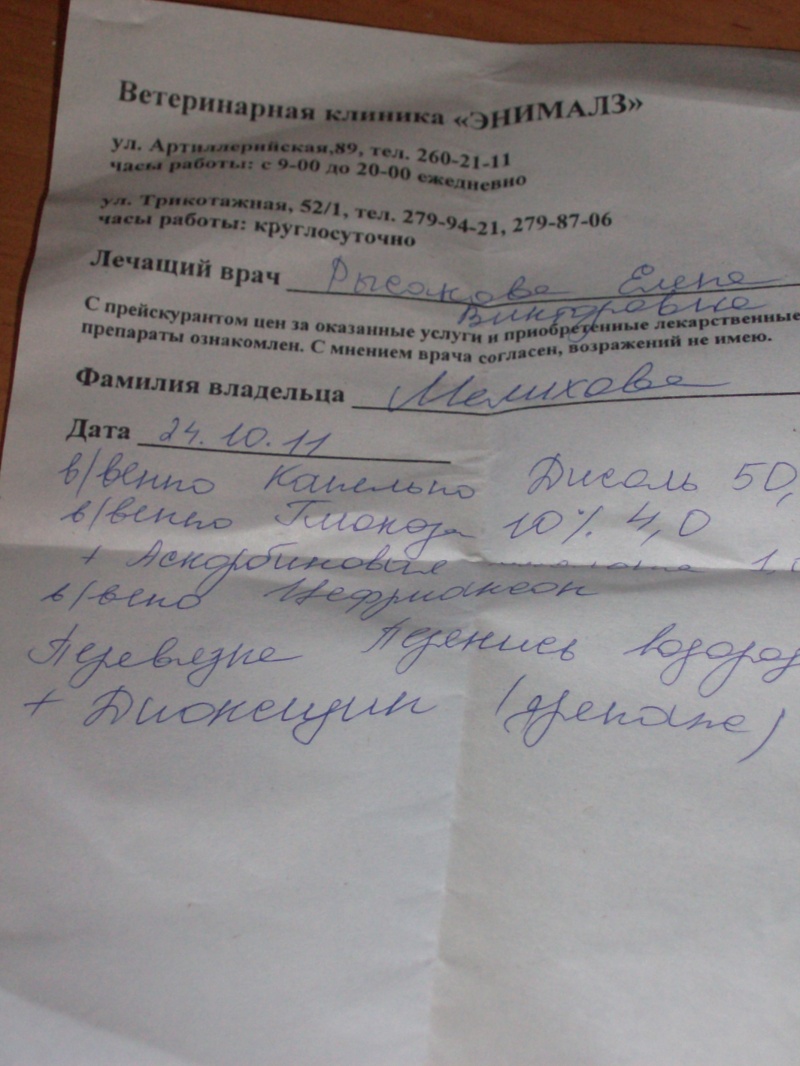 Ветеринарная клиника «ЭНИМАЛЗ»
ул. Артиллерийская,89, тел. 260-21-11
часы работы: с 9-00 до 20-00 ежедневно
ул. Трикотажная, 52/1, тел. 279-94-21, 279-87-06
часы работы: круглосуточно
Лечащий врач Рысакова Елена
Викторовна
С прейскурантом цен за оказанные услуги и приобретенные лекарственные
препараты ознакомлен. С мнением врача согласен, возражений не имею.
Фамилия владельца Мелихова
Дата 24.10.11
в/венно Капельно Дисоль 50,
в/венно Глюкоза 10% 4,0
+ Аскорбиновая
в/вено Цефтриаксон
Перевязка Перекись водород
+ Диоксидин (дренаж)